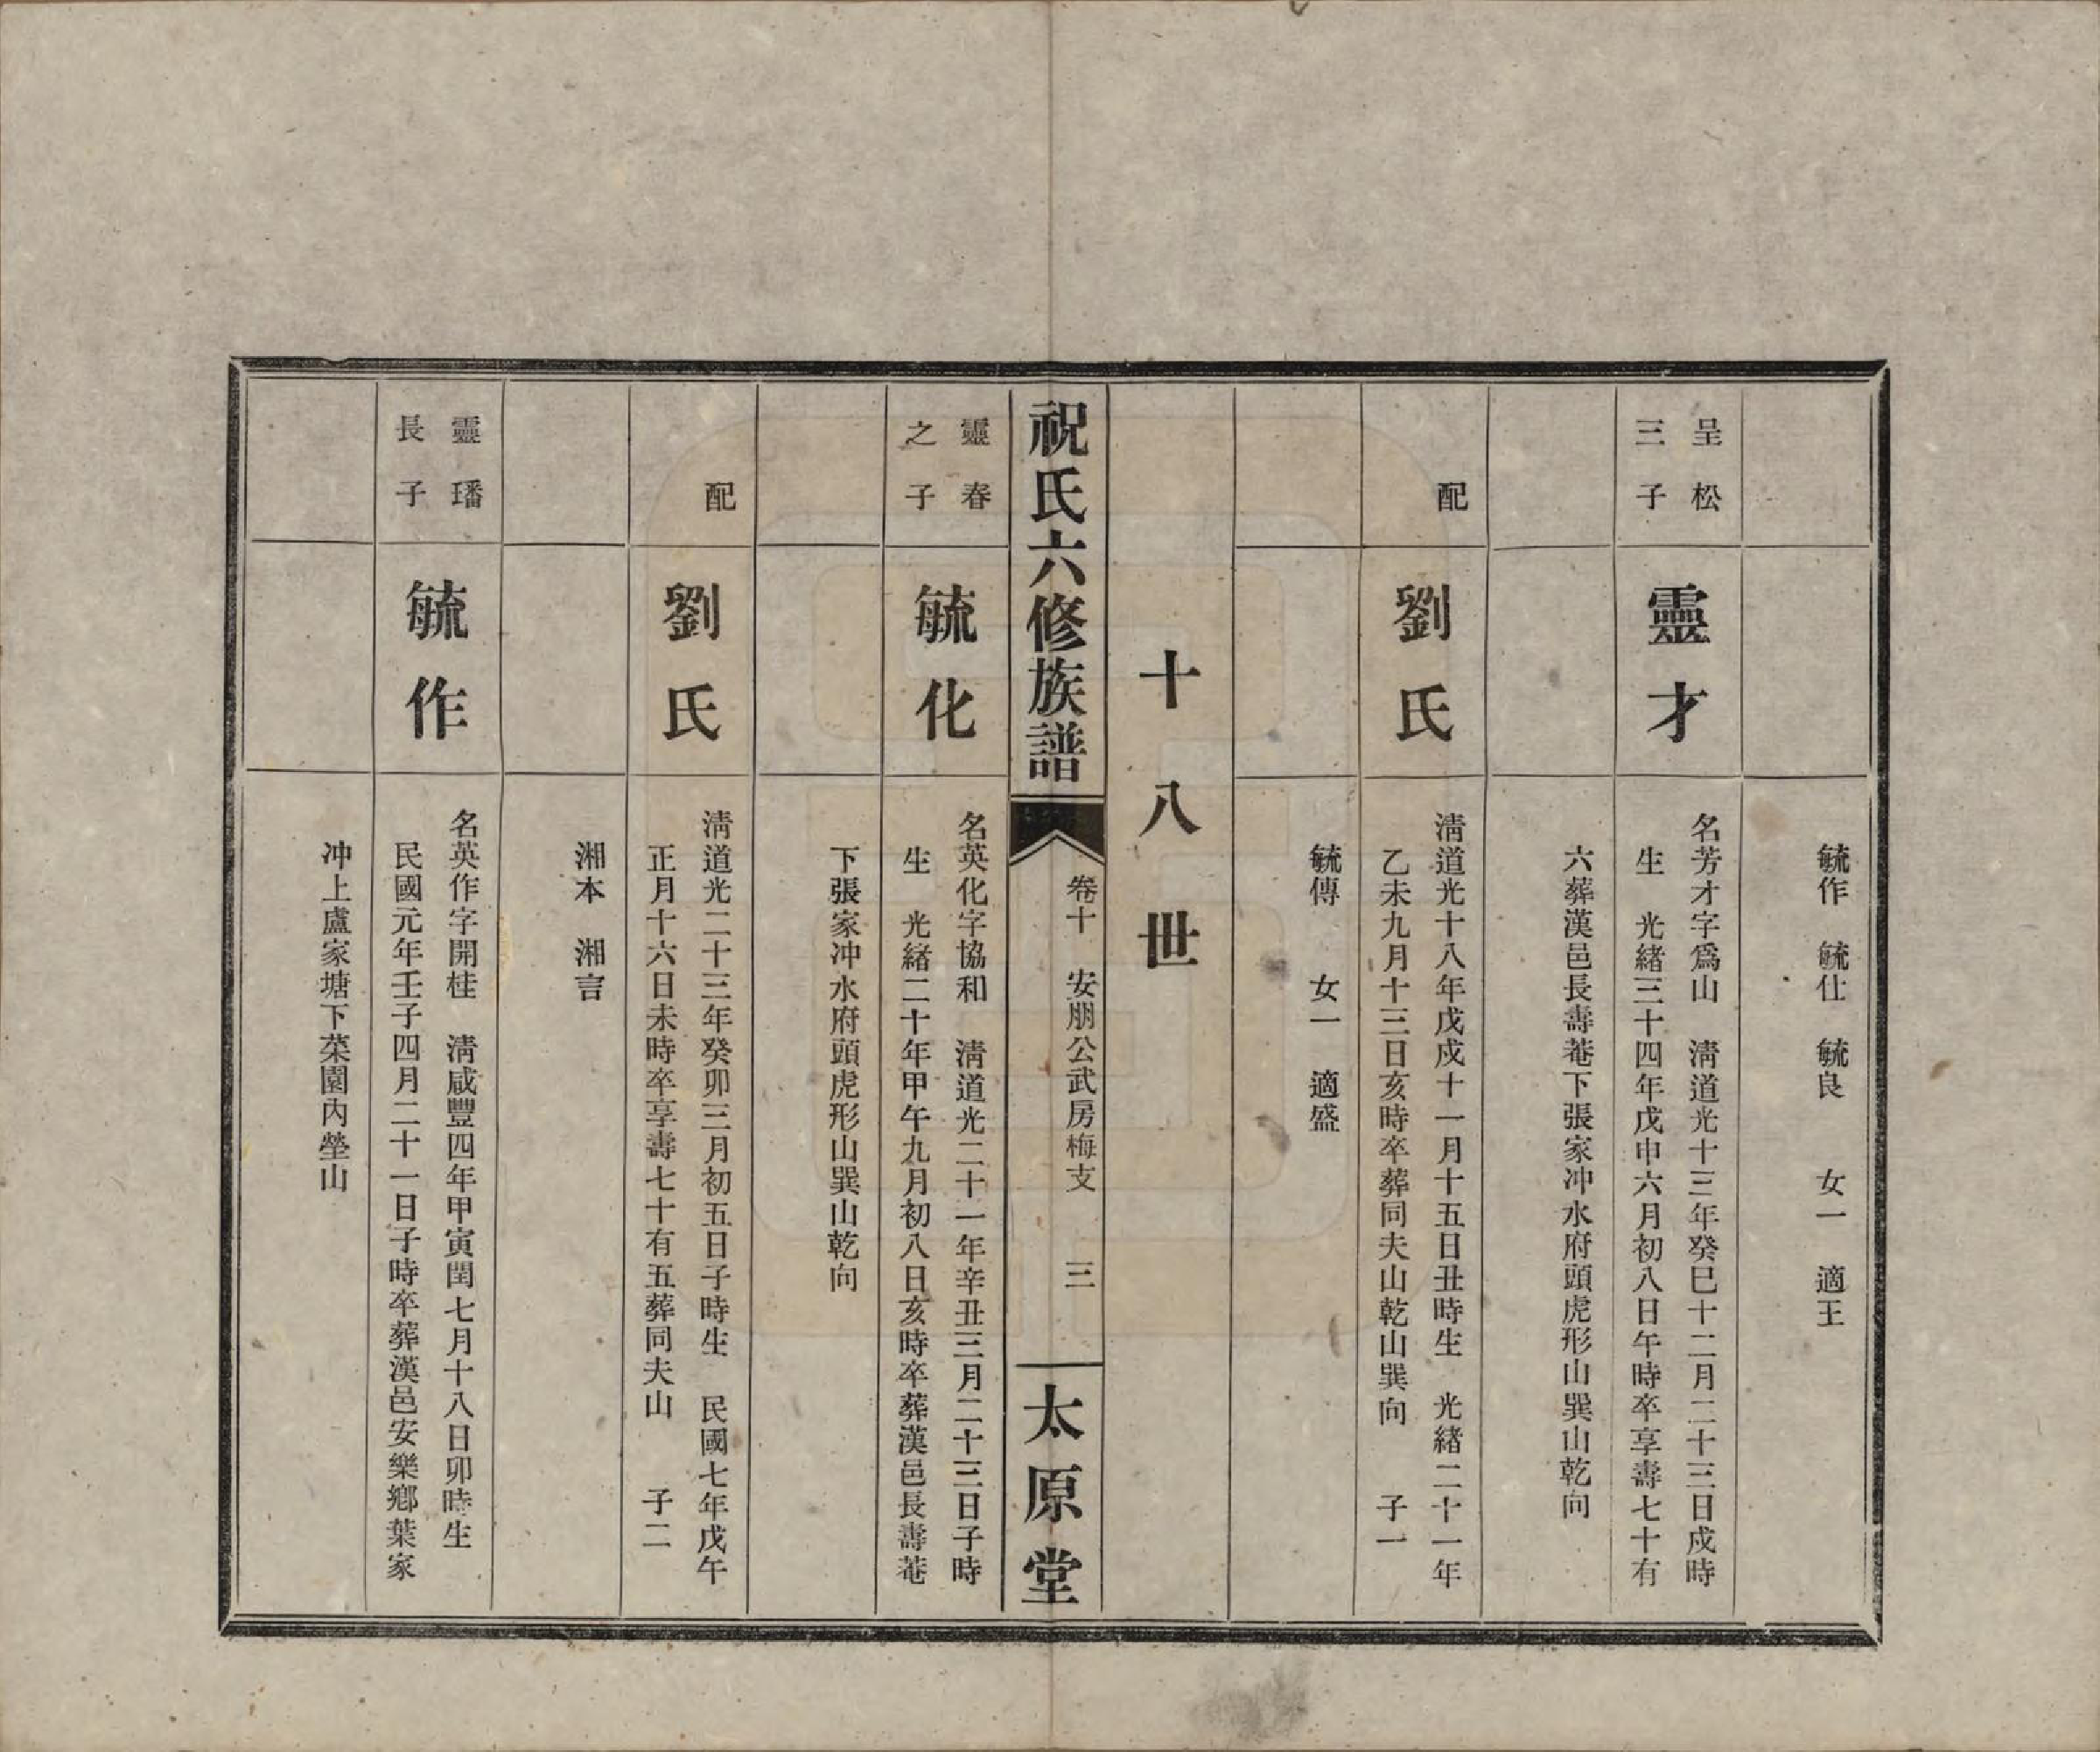 毓作　毓仕　毓良　　女一　適王
呈松
三子
靈才
名芳才字爲山　淸道光十三年癸巳十二月二十三日戍時
生　光緒三十四年戊申六月初八日午時卒享壽七十有
六葬漢邑長壽菴下張家冲水府頭虎形山巽山乾向
配
劉氏
淸道光十八年戊戍十一月十五日丑時生　光緒二十一年
乙未九月十三日亥時卒葬同夫山乾山巽向　　子一
毓傳　　女一　適盛
十八世
祝氏六修族譜
卷十　安朋公武房梅支　　三
太原堂
靈春
之子
毓化
名英化字協和　淸道光二十一年辛丑三月二十三日子時
生　光緒二十年甲午九月初八日亥時卒葬漢邑長壽菴
下張家冲水府頭虎形山巽山乾向
配
劉氏
淸道光二十三年癸卯三月初五日子時生　民國七年戊午
正月十六日未時卒享壽七十有五葬同夫山　　子二
湘本　湘言
靈璠
長子
毓作
名英作字開桂　淸咸豐四年甲寅閏七月十八日卯時生
民國元年壬子四月二十一日子時卒葬漢邑安樂鄉葉家
冲上盧家塘下菜園內塋山